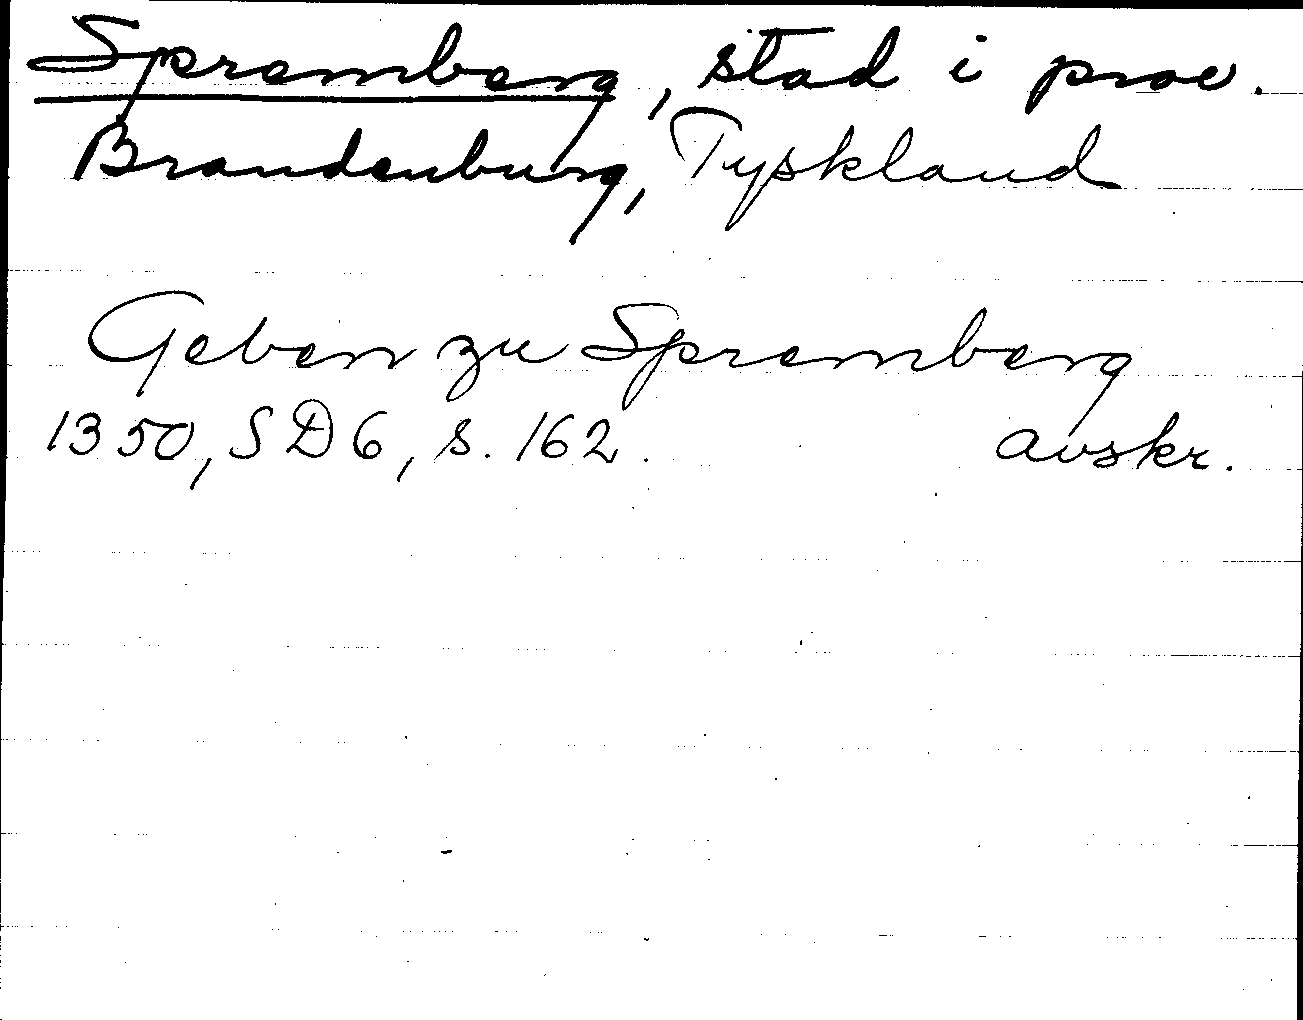 Spremberg, stad i prov.
Brandenburg, Tyskland
Geben zu Spremberg
1350, SD 6, s. 162. avskr.